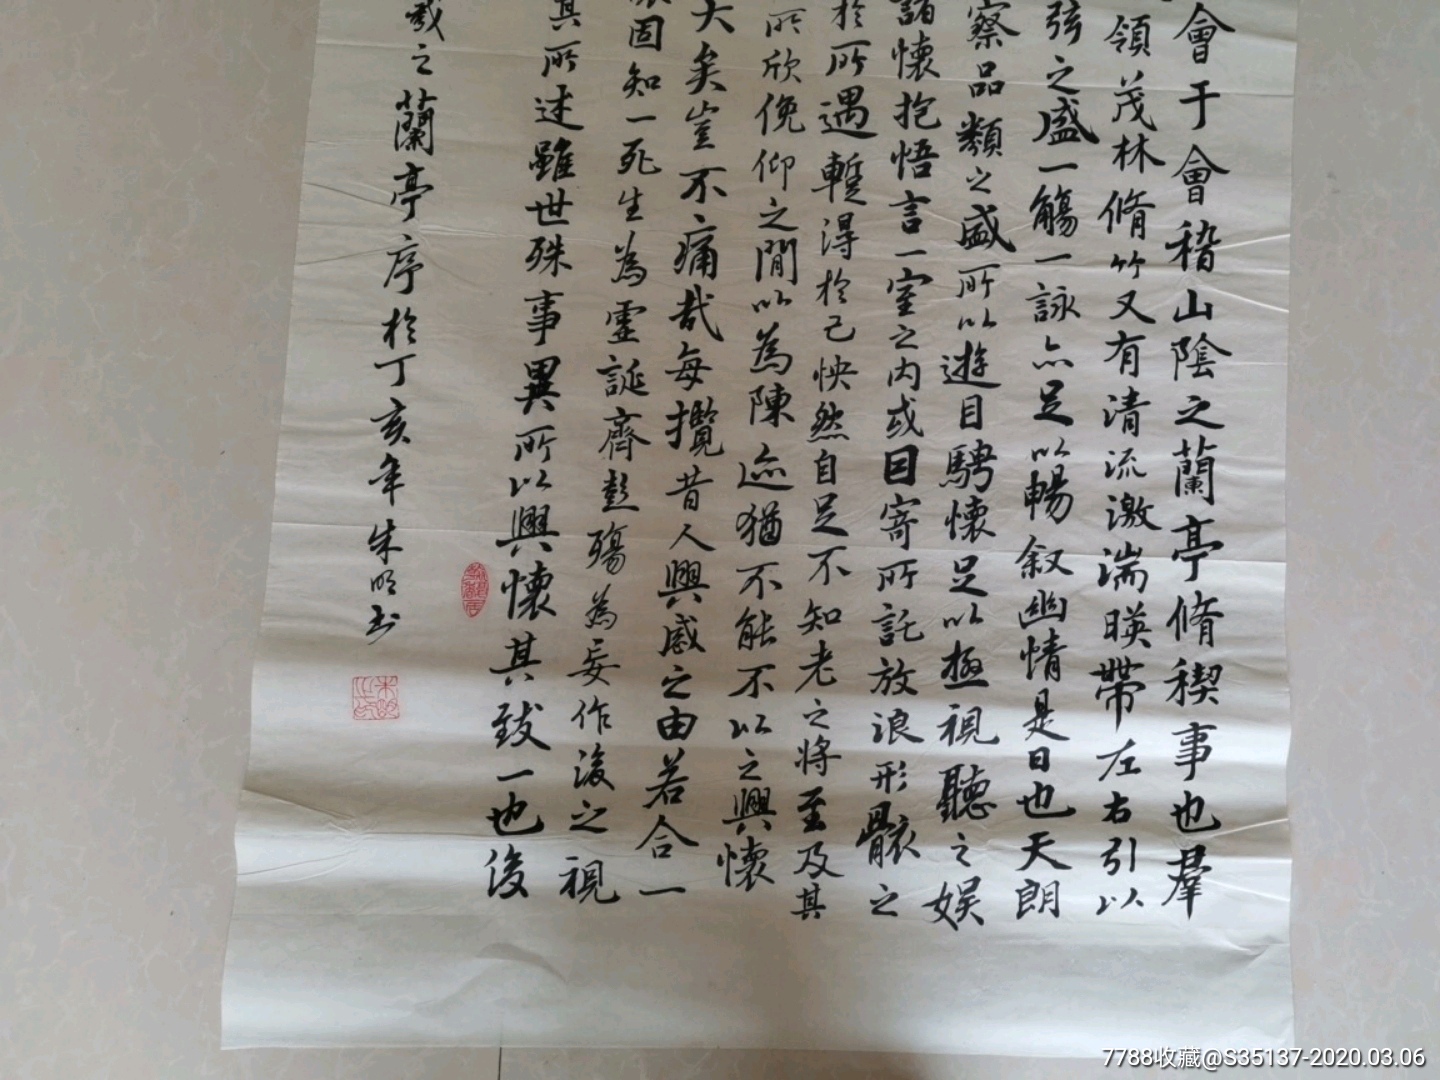 會于會稽山陰之蘭亭脩稧事也羣
領茂林脩竹又有清流激湍暎帶左右引以
弦之盛一觴一詠亦足以暢叙幽情是日也天朗
察品類之盛所以遊目騁懷足以極視聽之娛
諸懷抱悟言一室之内或因寄所託放浪形骸之
於所遇暫得於己怏然自足不知老之將至及其
所欣俛仰之間以為陳迹猶不能不以之興懷
大矣豈不痛哉每攬昔人興感之由若合一
固知一死生為虛誕齊彭殤為妄作後之視
其所述雖世殊事異所以興懷其致一也後
之蘭亭序於丁亥年朱明书
7788收藏@S35137-2020.03.06